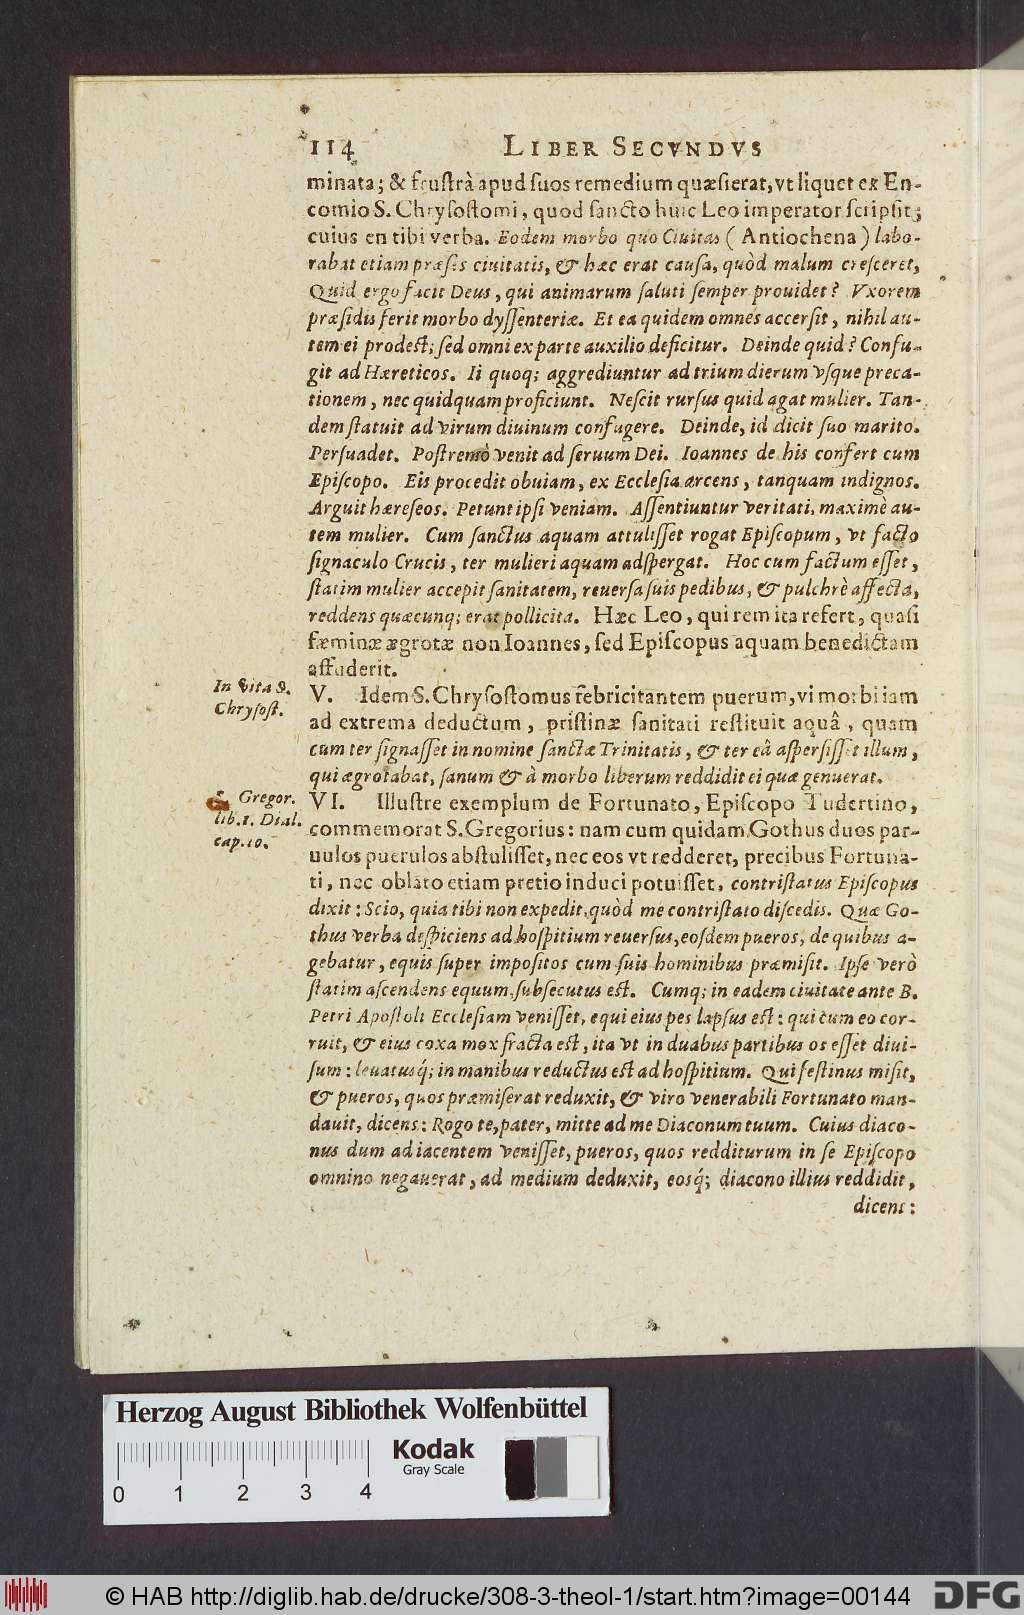 114 LIBER SECVNDVS
minata; & frustrà apud suos remedium quæsierat, vt liquet ex En-
comio S. Chrysostomi, quod sancto huic Leo imperator scripsit;
cuius en tibi verba. Eodem morbo quo Ciuitas (Antiochena) labo-
rabat etiam præses ciuitatis, & hæc erat causa, quòd malum cresceret,
Quid ergo facit Deus, qui animarum saluti semper prouidet? Vxorem
præsidis ferit morbo dyssenteriæ. Et ea quidem omnes accersit, nihil au-
tem ei prodest; sed omni ex parte auxilio deficitur. Deinde quid? Confu-
git ad Hæreticos. Ii quoq; aggrediuntur ad trium dierum vsque preca-
tionem, nec quidquam proficiunt. Nescit rursus quid agat mulier. Tan-
dem statuit ad virum diuinum confugere. Deinde, id dicit suo marito.
Persuadet. Postremò venit ad seruum Dei. Ioannes de his confert cum
Episcopo. Eis procedit obuiam, ex Ecclesia arcens, tanquam indignos.
Arguit hæreseos. Petunt ipsi veniam. Assentiuntur veritati, maximè au-
tem mulier. Cum sanctus aquam attulisset rogat Episcopum, vt facto
signaculo Crucis, ter mulieri aquam adspergat. Hoc cum factum esset,
statim mulier accepit sanitatem, reuersa suis pedibus, & pulchrè affecta,
reddens quæcunq; erat pollicita. Hæc Leo, qui rem ita refert, quasi
fæminæ ægrotæ non Ioannes, sed Episcopus aquam benedictam
affuderit.
In vita S.
Chrysost.
V. Idem S. Chrysostomus febricitantem puerum, vi morbi iam
ad extrema deductum, pristinæ sanitati restituit aquâ, quam
cum ter signasset in nomine sanctæ Trinitatis, & ter eâ aspersisset illum,
qui ægrotabat, sanum & à morbo liberum reddidit ei quæ genuerat.
S. Gregor.
lib.1. Dial.
cap.10.
VI. Illustre exemplum de Fortunato, Episcopo Tudertino,
commemorat S. Gregorius: nam cum quidam Gothus duos par-
uulos puerulos abstulisset, nec eos vt redderet, precibus Fortuna-
ti, nec oblato etiam pretio induci potuisset, contristatus Episcopus
dixit: Scio, quia tibi non expedit, quòd me contristato discedis. Quæ Go-
thus verba despiciens ad hospitium reuersus, eosdem pueros, de quibus a-
gebatur, equis super impositos cum suis hominibus præmisit. Ipse verò
statim ascendens equum, subsecutus est. Cumq; in eadem ciuitate ante B.
Petri Apostoli Ecclesiam venisset, equi eius pes lapsus est: qui cum eo cor-
ruit, & eius coxa mox fracta est, ita vt in duabus partibus os esset diui-
sum: leuatusq́; in manibus reductus est ad hospitium. Qui festinus misit,
& pueros, quos præmiserat reduxit, & viro venerabili Fortunato man-
dauit, dicens: Rogo te, pater, mitte ad me Diaconum tuum. Cuius diaco-
nus dum ad iacentem venisset, pueros, quos redditurum in se Episcopo
omnino negauerat, ad medium deduxit, eosq́; diacono illius reddidit,
dicens:
Herzog August Bibliothek Wolfenbüttel
Kodak
Gray Scale
0 1 2 3 4
© HAB http://diglib.hab.de/drucke/308-3-theol-1/start.htm?image=00144 DFG